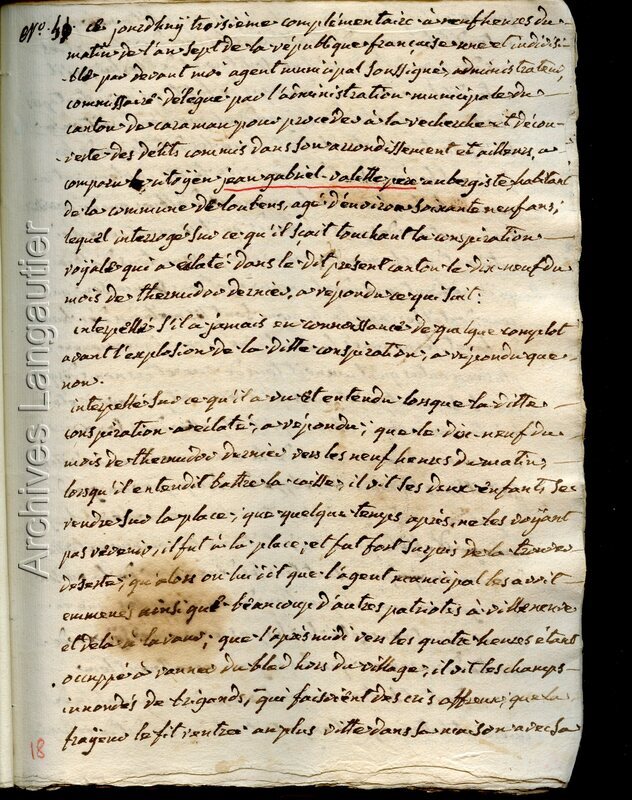 ce jourdhuy troisième complémentaire à neuf heures du
matin de l'an sept de la république française une et indivisi-
ble par devant moi agent municipal soussigné, administrateur,
commissaire délégué par l'administration municipale du
canton de caraman pour procéder à la recherche et décou-
verte des délits commis dans son arrondissement et ailleurs, a
comparu le citoyen jean gabriel valette père aubergiste habitant
de la commune de loubens, agé d'environ soixante neuf ans,
lequel interrogé sur ce qu'il sçait touchant la conspiration
royale qui a éclaté dans le dit présent canton le dix-neuf du
mois de thermidor dernier, a répondu ce qui suit:
interpellé s'il a jamais eu connoissance de quelque complot
avant l'explosion de la ditte conspiration, a répondu que
non.
interpellé sur ce qu'il a vu et entendu lorsque la ditte
conspiration a éclaté, a répondu, que le dix-neuf du
mois de thermidor dernier vers les neuf heures du matin,
lorsqu'il entendit battre la caisse, il vit ses deux enfants se
rendre sur la place; que quelque temps après, ne les voyant
pas revenir, il fut à la place, et fut fort surpris de la trouver
déserte; qu'alors on lui dit que l'agent municipal les avoit
emmenés ainsi que beaucoup d'autres patriotes à villeneuve
et delà à lavaur; que l'après midi vers les quatre heures étant
occuppé à vanner du bled hors du village, il vit les champs
innondés de brigands, qui faisoient des cris affreux; que la
frayeur le fit rentrer au plus vitte dans sa maison avec sa
18
Archives Langautier